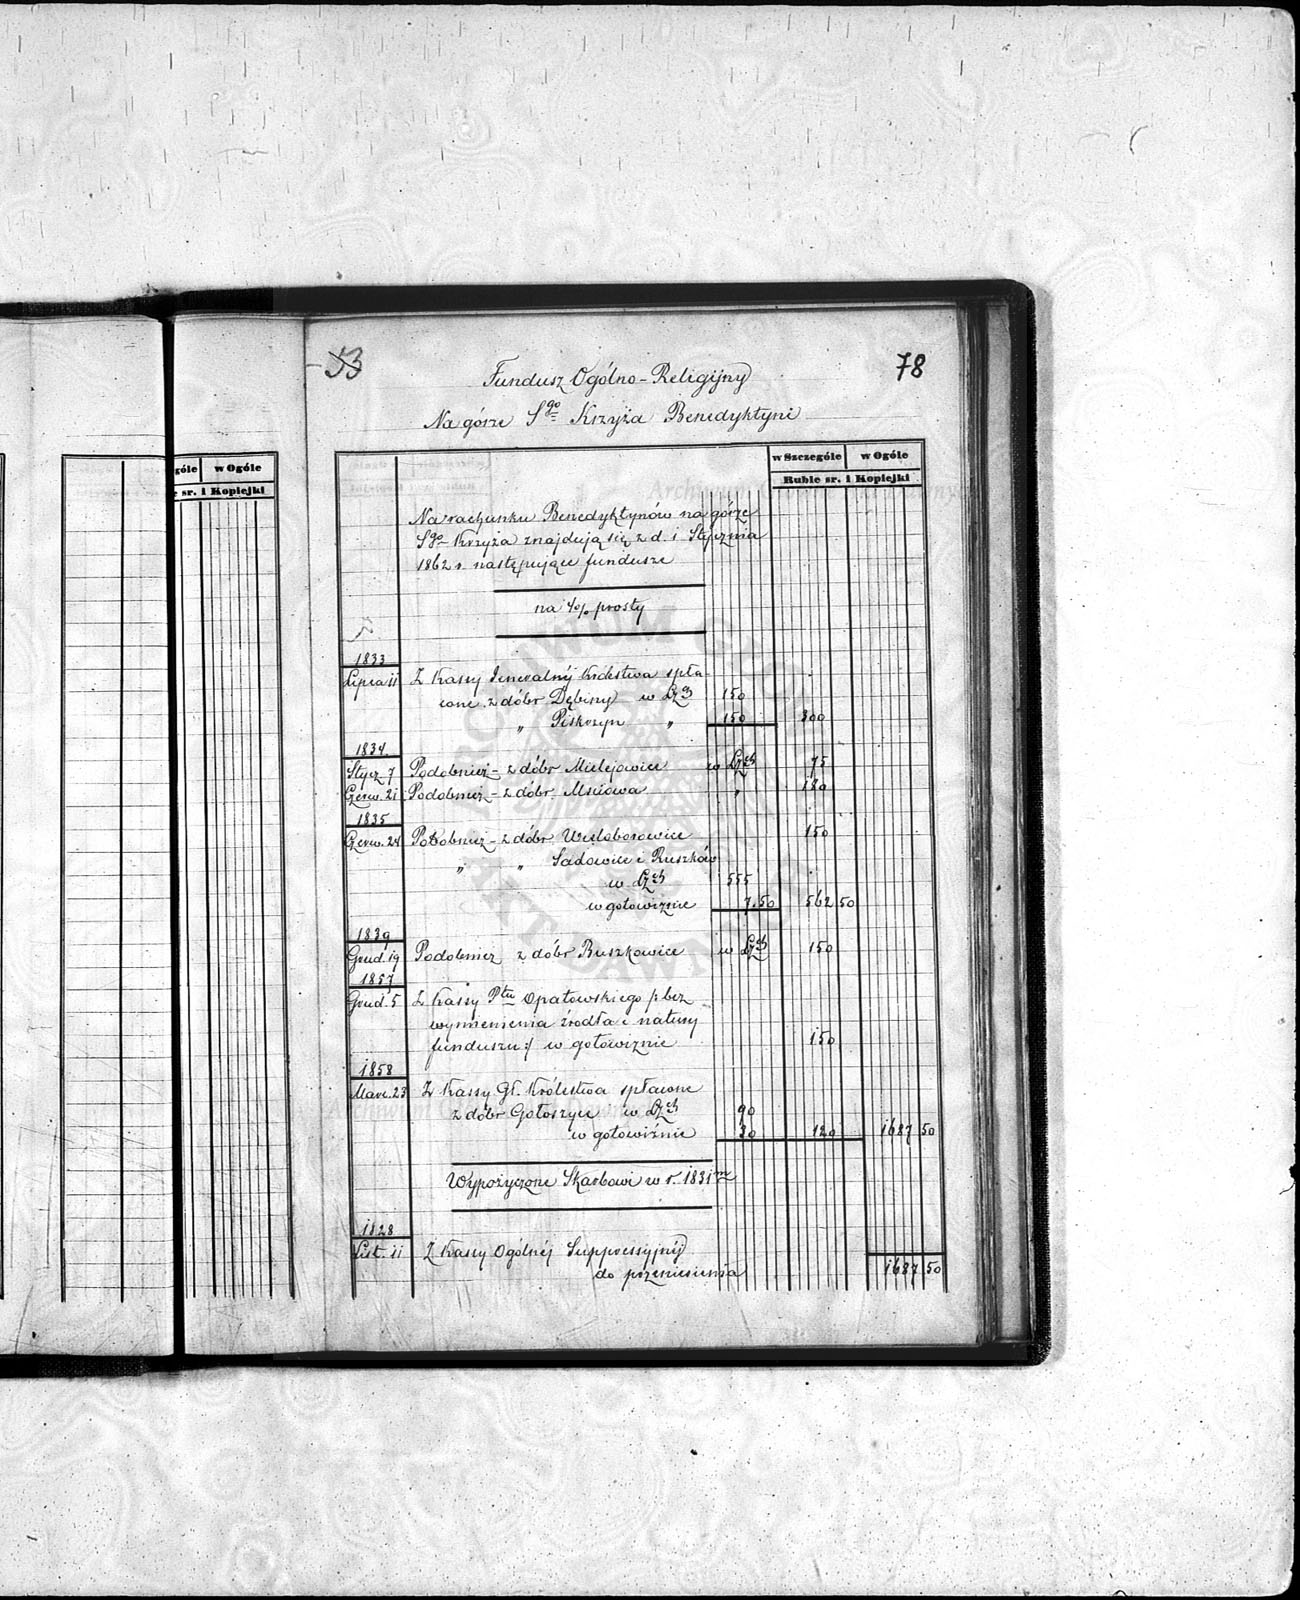 53
78
Fundusz Ogólno-Religijny
Na górze Sgo Krzyża Benedyktyni
góle w Ogóle
sr. i Kopiejki
w Szczególe w Ogóle
Ruble sr. i Kopiejki
Na rachunku Benedyktynów na górze
Sgo Krzyża znajdują się z d. 1 Stycznia
1862 r. następujące fundusze
na 4% prosty
1833
Lipca 11 Z Kassy Jeneralnéj Królestwa spła
cone z dóbr Dębiny w 150
" Piskrzyn " 150 300
1834
Stycz. 7 Podobnież - z dóbr Mielejowice w 75
Czerw. 21 Podobnież - z dóbr " 180
1835
Czerw. 24 Podobnież - z dóbr 150
" " Sadowice i Ruszków
w 555
w gotowiźnie 7.50 562 50
1839
Grud. 19 Podobnież z dóbr Buszkowice w 150
1857
Grud. 5 Z Kassy Ptu Opatowskiego /: bez
wymienienia źródła i natury
funduszu :/ w gotowiźnie 150
1858
Marc. 23 Z Kassy Gł. Królestwa spłacone
z dóbr Gołoszyce w 90
w gotowiźnie 30 120 1687 50
Wypożyczone Skarbowi w r. 1831m
1828
List. 11 Z Kassy Ogólnéj Suppressyjnéj
do przeniesienia 1687 50